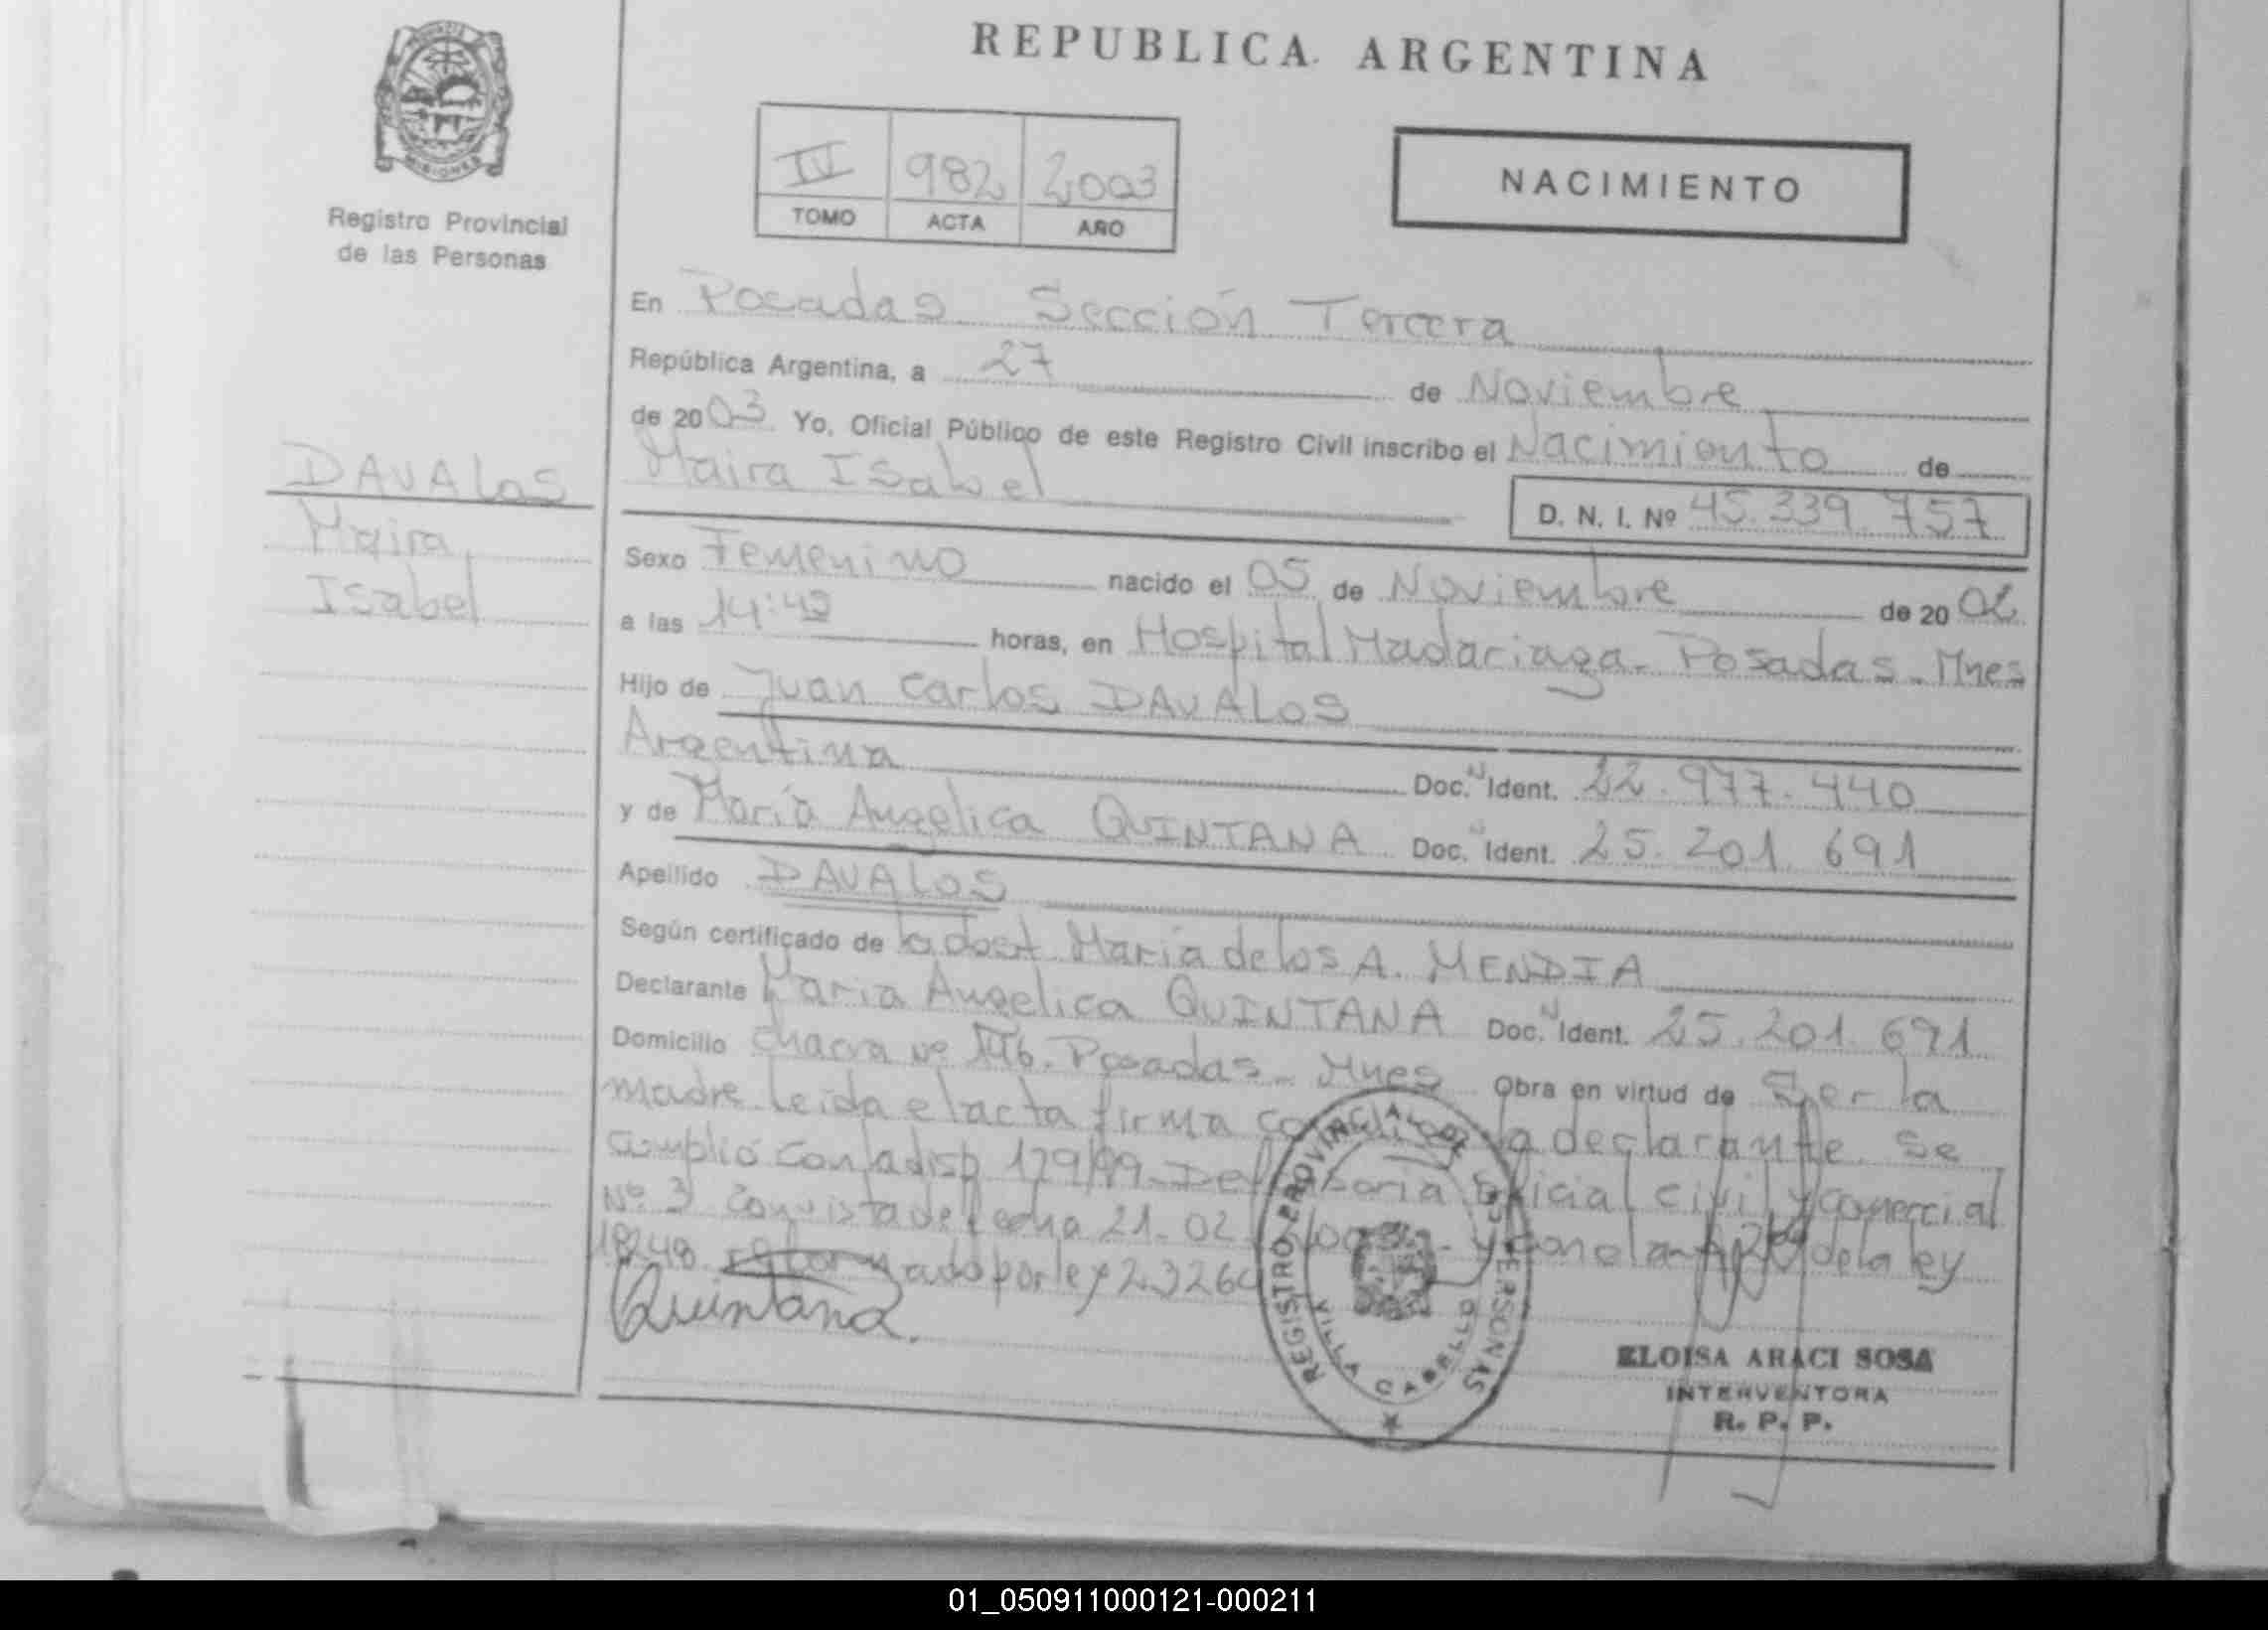 REPUBLICA ARGENTINA
PROVINCIA
MISIONES
Registro Provincial
de las Personas
IV 982 2003
TOMO ACTA AÑO
NACIMIENTO
En Posadas Sección Tercera
República Argentina, a 27 de Noviembre
de 2003 Yo, Oficial Público de este Registro Civil inscribo el Nacimiento de
Maira Isabel
D. N. I. Nº 45.339.757
DAVALOS
Maira
Isabel
Sexo Femenino nacido el 05 de Noviembre de 2002
a las 14:49 horas, en Hospital Madariaga - Posadas - Mnes
Hijo de Juan Carlos DAVALOS
Argentina Doc. N Ident. 22.977.440
y de María Angelica QUINTANA Doc. N Ident. 25.201.691
Apellido DAVALOS
Según certificado de la María de los A. MENDIA
Declarante Maria Angelica QUINTANA Doc. N Ident. 25.201.691
Domicilio Chacra Nº Posadas - Mnes Obra en virtud de Ser la
madre Leida el acta firma la declarante. Se
cumplió con la disp 129/99 - Oficial Civil y Comercial
Nº 3 con vista de fecha 21-02 y con el de la ley
18248 por ley 23264
Quintana
REGISTRO PROVINCIAL DE LAS PERSONAS
VILLA CABELLO
ELOISA ARACI SOSA
INTERVENTORA
R. P. P.
01_050911000121-000211